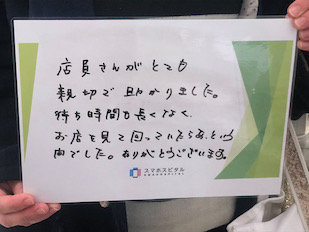 店員さんがとても
親切で助かりました。
待ち時間も長くなく、
お店を見て回っていたらあっという
間でした。ありがとうございます。
スマホスピタル
SMAHOSPITAL